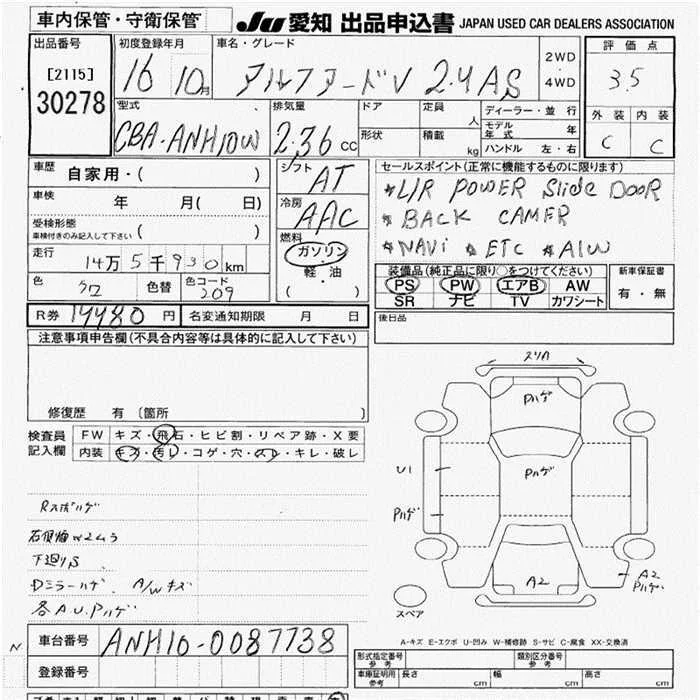 車内保管・守衛保管
JU 愛知 出品申込書 JAPAN USED CAR DEALERS ASSOCIATION
出品番号
[2115]
30278
初度登録年月
16 10月
車名・グレード
アルファードV 2.4 AS
2WD
4WD
評価点
3.5
外装 内装
C C
型式
CBA-ANH10W
排気量
2.36 CC
ドア
形状
定員 人
積載 kg
ディーラー・並行
モデル年式 年
ハンドル 左・右
車歴 自家用・( )
車検 年 月( 日)
受検形態
車検付きのみ記入して下さい ( )
走行
14万5千930km
色 クロ 色替 色コード 209
シフト
AT
冷房
AAC
燃料
ガソリン
・
軽・油
( )
セールスポイント(正常に機能するものに限ります)
*L/R POWER Slide DOOR
*BACK CAMER
*NAVi *ETC *A/W
装備品(純正品に限り○をつけてください)
PS PW エアB AW
SR ナビ TV カワシート
新車保証書
有・無
R券 14480円 名変通知期限 月 日
後日品
注意事項申告欄(不具合内容等は具体的に記入して下さい)
修復歴 有 〔箇所 〕
検査員
記入欄
FW キズ・飛石・ヒビ割・リペア跡・X要
内装 キズ・汚レ・コゲ・穴・スレ・キレ・破レ
Rスポハゲ
下廻りS
Dミラーハゲ A/Wキズ
各A.U.Pハゲ
スリA
Pハゲ
U1
Pハゲ
Pハゲ
A2
A2
Pハゲ
スペア
A-キズ E-エクボ U-凹み W-補修跡 S-サビ C-腐食 XX-交換済
N
車台番号 ANH10-0087738
登録番号
形式指定番号
参考
類別区分番号
参考
車庫証明用
参考
長さ cm 幅 cm 高さ cm